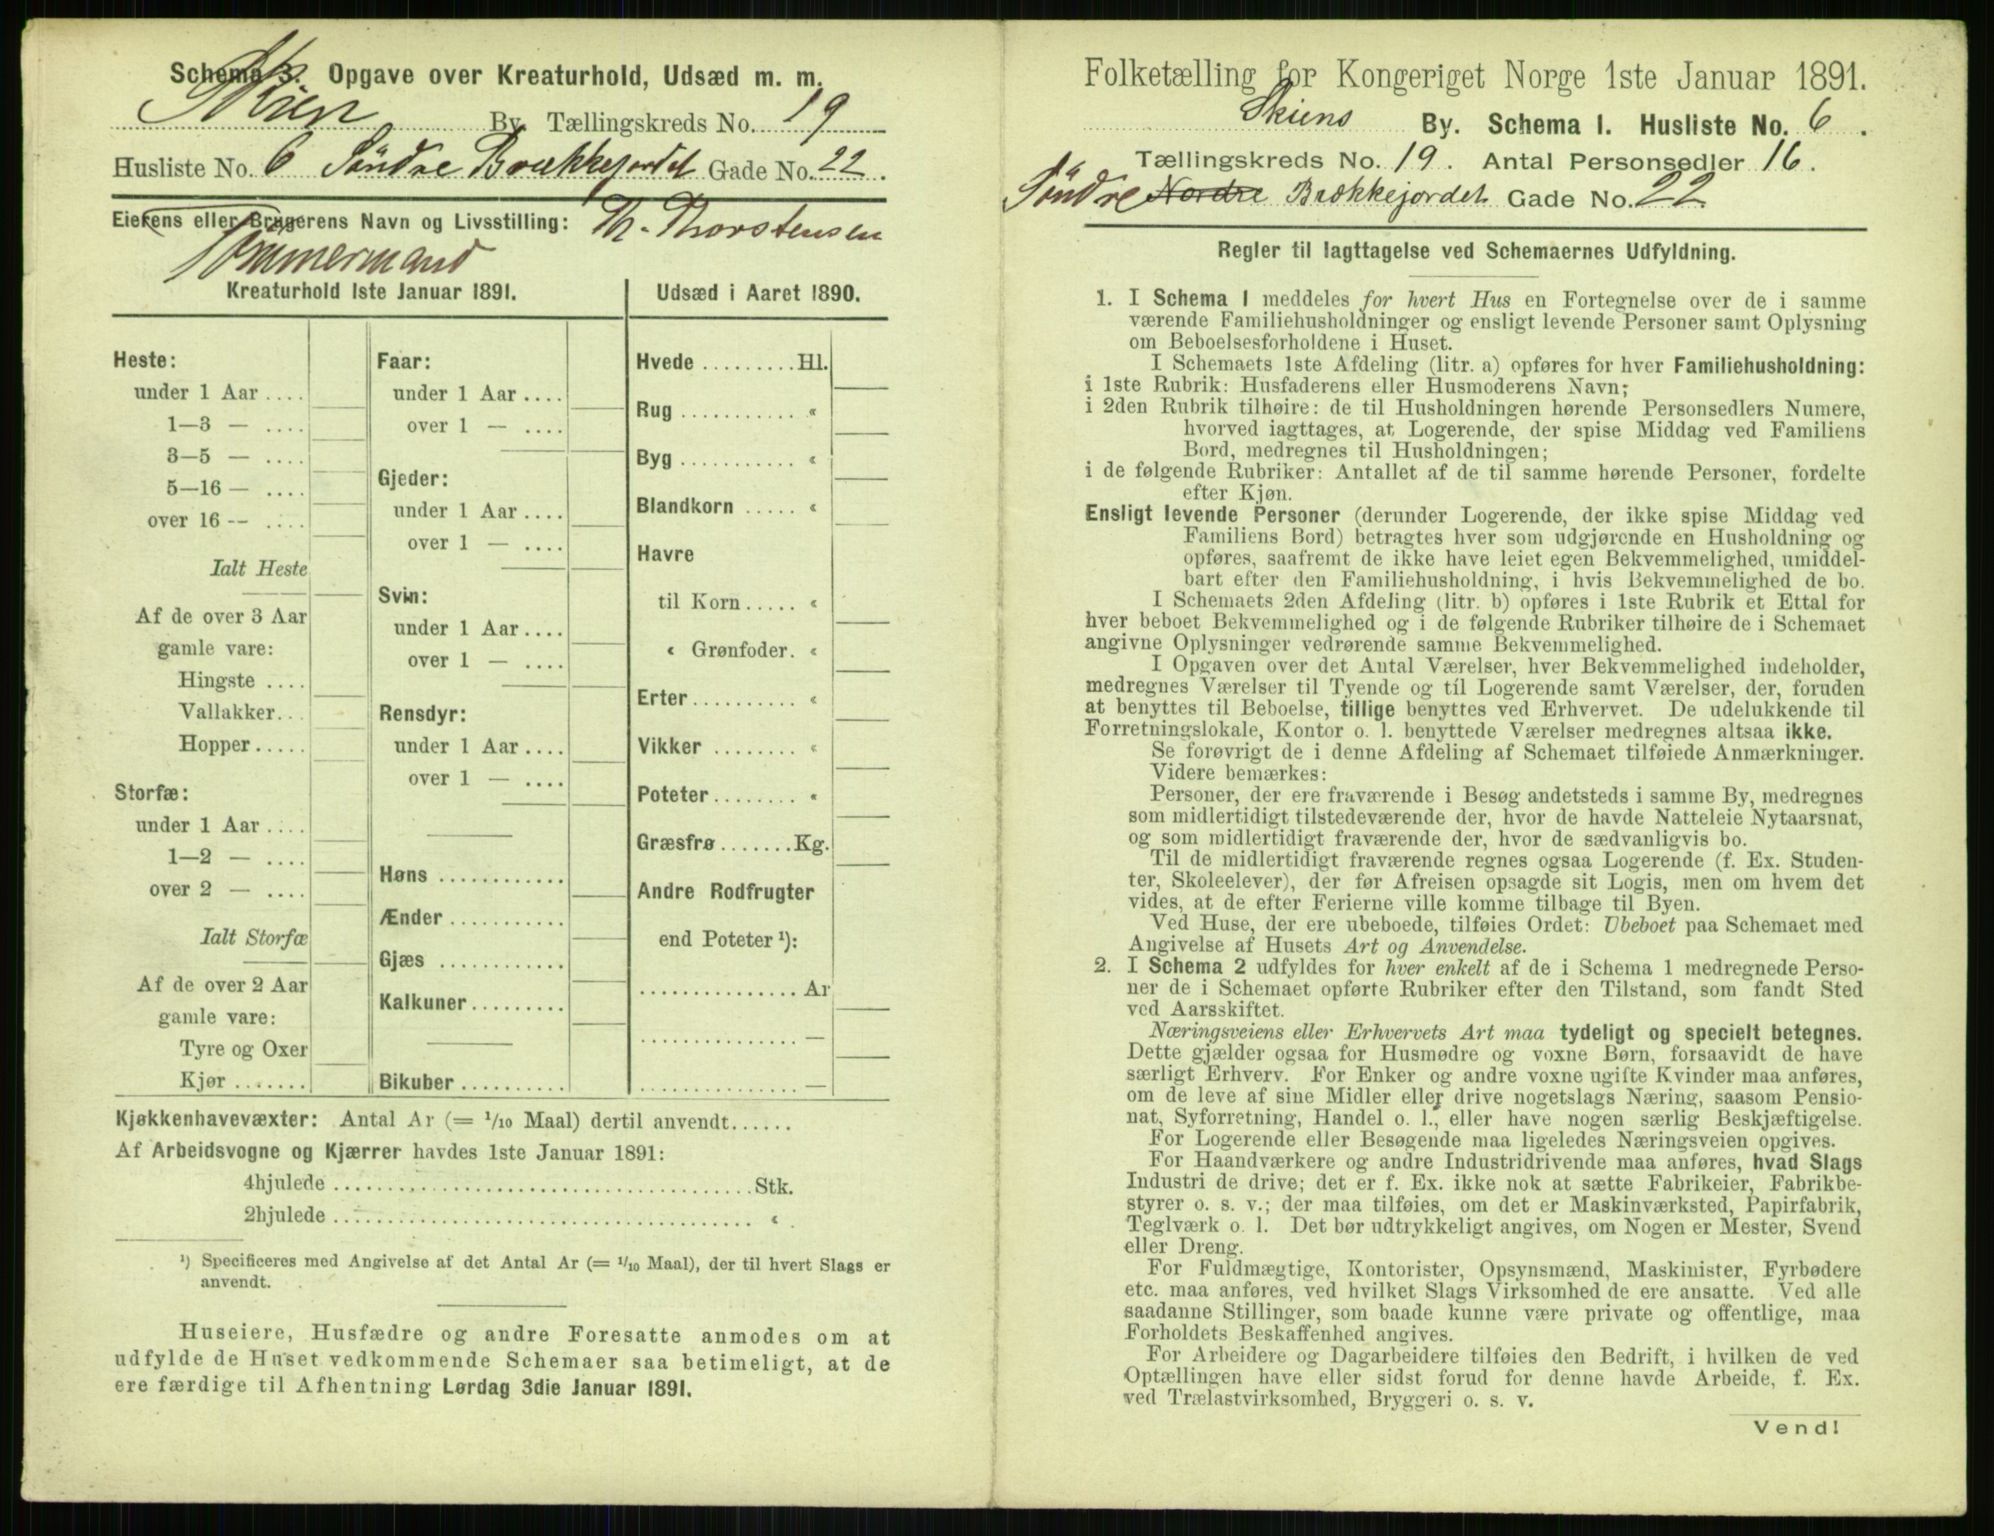 Schema 3. Opgave over Kreaturhold, Udsæd m. m.
Skien By Tællingskreds No. 19
Husliste No. 6 Søndre Brækkejordet Gade No. 22.
Eierens eller Brugerens Navn og Livsstilling: Th. Thorstensen
Tømmermand
Kreaturhold 1ste Januar 1891.
Heste:
under 1 Aar ....
1—3 — ....
3—5 — ....
5—16 — ....
over 16 -- ....
Ialt Heste
Af de over 3 Aar
gamle vare:
Hingste ....
Vallakker...
Hopper.....
Storfæ:
under 1 Aar ....
1—2 — ....
over 2 — ....
Ialt Storfæ
Af de over 2 Aar
gamle vare:
Tyre og Oxer
Kjør .......
Faar:
under 1 Aar ....
over 1 — ....
Gjeder:
under 1 Aar ....
over 1 — ....
Svin:
under 1 Aar ....
over 1 — ....
Rensdyr:
under 1 Aar ....
over 1 — ....
Høns ............
Ænder ...........
Gjæs ............
Kalkuner .........
Bikuber ..........
Udsæd i Aaret 1890.
Hvede ......... Hl.
Rug ........... «
Byg ........... «
Blandkorn ..... «
Havre
til Korn ..... «
« Grønfoder. «
Erter .......... «
Vikker ......... «
Poteter ........ «
Græsfrø ....... Kg.
Andre Rodfrugter
end Poteter ¹):
............... Ar
............... —
............... —
Kjøkkenhavevæxter: Antal Ar (= 1/10 Maal) dertil anvendt......
Af Arbeidsvogne og Kjærrer havdes 1ste Januar 1891:
4hjulede ........................................ Stk.
2hjulede ........................................ «
¹) Specificeres med Angivelse af det Antal Ar (= 1/10 Maal), der til hvert Slags er
anvendt.
Huseiere, Husfædre og andre Foresatte anmodes om at
udfylde de Huset vedkommende Schemaer saa betimeligt, at de
ere færdige til Afhentning Lørdag 3die Januar 1891.
Folketælling for Kongeriget Norge 1ste Januar 1891.
Skiens By. Schema I. Husliste No. 6.
Tællingskreds No. 19. Antal Personsedler 16.
Søndre Nordre Brækkejordet Gade No. 22
Regler til Iagttagelse ved Schemaernes Udfyldning.
1. I Schema 1 meddeles for hvert Hus en Fortegnelse over de i samme
værende Familiehusholdninger og ensligt levende Personer samt Oplysning
om Beboelsesforholdene i Huset.
I Schemaets 1ste Afdeling (litr. a) opføres for hver Familiehusholdning:
i 1ste Rubrik: Husfaderens eller Husmoderens Navn;
i 2den Rubrik tilhøire: de til Husholdningen hørende Personsedlers Numere,
hvorved iagttages, at Logerende, der spise Middag ved Familiens
Bord, medregnes til Husholdningen;
i de følgende Rubriker: Antallet af de til samme hørende Personer, fordelte
efter Kjøn.
Ensligt levende Personer (derunder Logerende, der ikke spise Middag ved
Familiens Bord) betragtes hver som udgjørende en Husholdning og
opføres, saafremt de ikke have leiet egen Bekvemmelighed, umiddel-
bart efter den Familiehusholdning, i hvis Bekvemmelighed de bo.
I Schemaets 2den Afdeling (litr. b) opføres i 1ste Rubrik et Ettal for
hver beboet Bekvemmelighed og i de følgende Rubriker tilhøire de i Schemaet
angivne Oplysninger vedrørende samme Bekvemmelighed.
I Opgaven over det Antal Værelser, hver Bekvemmelighed indeholder,
medregnes Værelser til Tyende og til Logerende samt Værelser, der, foruden
at benyttes til Beboelse, tillige benyttes ved Erhvervet. De udelukkende til
Forretningslokale, Kontor o. l. benyttede Værelser medregnes altsaa ikke.
Se forøvrigt de i denne Afdeling af Schemaet tilføiede Anmærkninger.
Videre bemærkes:
Personer, der ere fraværende i Besøg andetsteds i samme By, medregnes
som midlertidigt tilstedeværende der, hvor de havde Natteleie Nytaarsnat,
og som midlertidigt fraværende der, hvor de sædvanligvis bo.
Til de midlertidigt fraværende regnes ogsaa Logerende (f. Ex. Studen-
ter, Skoleelever), der før Afreisen opsagde sit Logis, men om hvem det
vides, at de efter Ferierne ville komme tilbage til Byen.
Ved Huse, der ere ubeboede, tilføies Ordet: Ubeboet paa Schemaet med
Angivelse af Husets Art og Anvendelse.
2. I Schema 2 udfyldes for hver enkelt af de i Schema 1 medregnede Perso-
ner de i Schemaet opførte Rubriker efter den Tilstand, som fandt Sted
ved Aarsskiftet.
Næringsveiens eller Erhvervets Art maa tydeligt og specielt betegnes.
Dette gjælder ogsaa for Husmødre og voxne Børn, forsaavidt de have
særligt Erhverv. For Enker og andre voxne ugifte Kvinder maa anføres,
om de leve af sine Midler eller drive nogetslags Næring, saasom Pensio-
nat, Syforretning, Handel o. l., eller have nogen særlig Beskjæftigelse.
For Logerende eller Besøgende maa ligeledes Næringsveien opgives.
For Haandværkere og andre Industridrivende maa anføres, hvad Slags
Industri de drive; det er f. Ex. ikke nok at sætte Fabrikeier, Fabrikbe-
styrer o. s. v.; der maa tilføies, om det er Maskinværksted, Papirfabrik,
Teglværk o. l. Det bør udtrykkeligt angives, om Nogen er Mester, Svend
eller Dreng.
For Fuldmægtige, Kontorister, Opsynsmænd, Maskinister, Fyrbødere
etc. maa anføres, ved hvilket Slags Virksomhed de ere ansatte. Ved alle
saadanne Stillinger, som baade kunne være private og offentlige, maa
Forholdets Beskaffenhed angives.
For Arbeidere og Dagarbeidere tilføies den Bedrift, i hvilken de ved
Optællingen have eller sidst forud for denne havde Arbeide, f. Ex.
ved Trælastvirksomhed, Bryggeri o. s. v.
Vend!